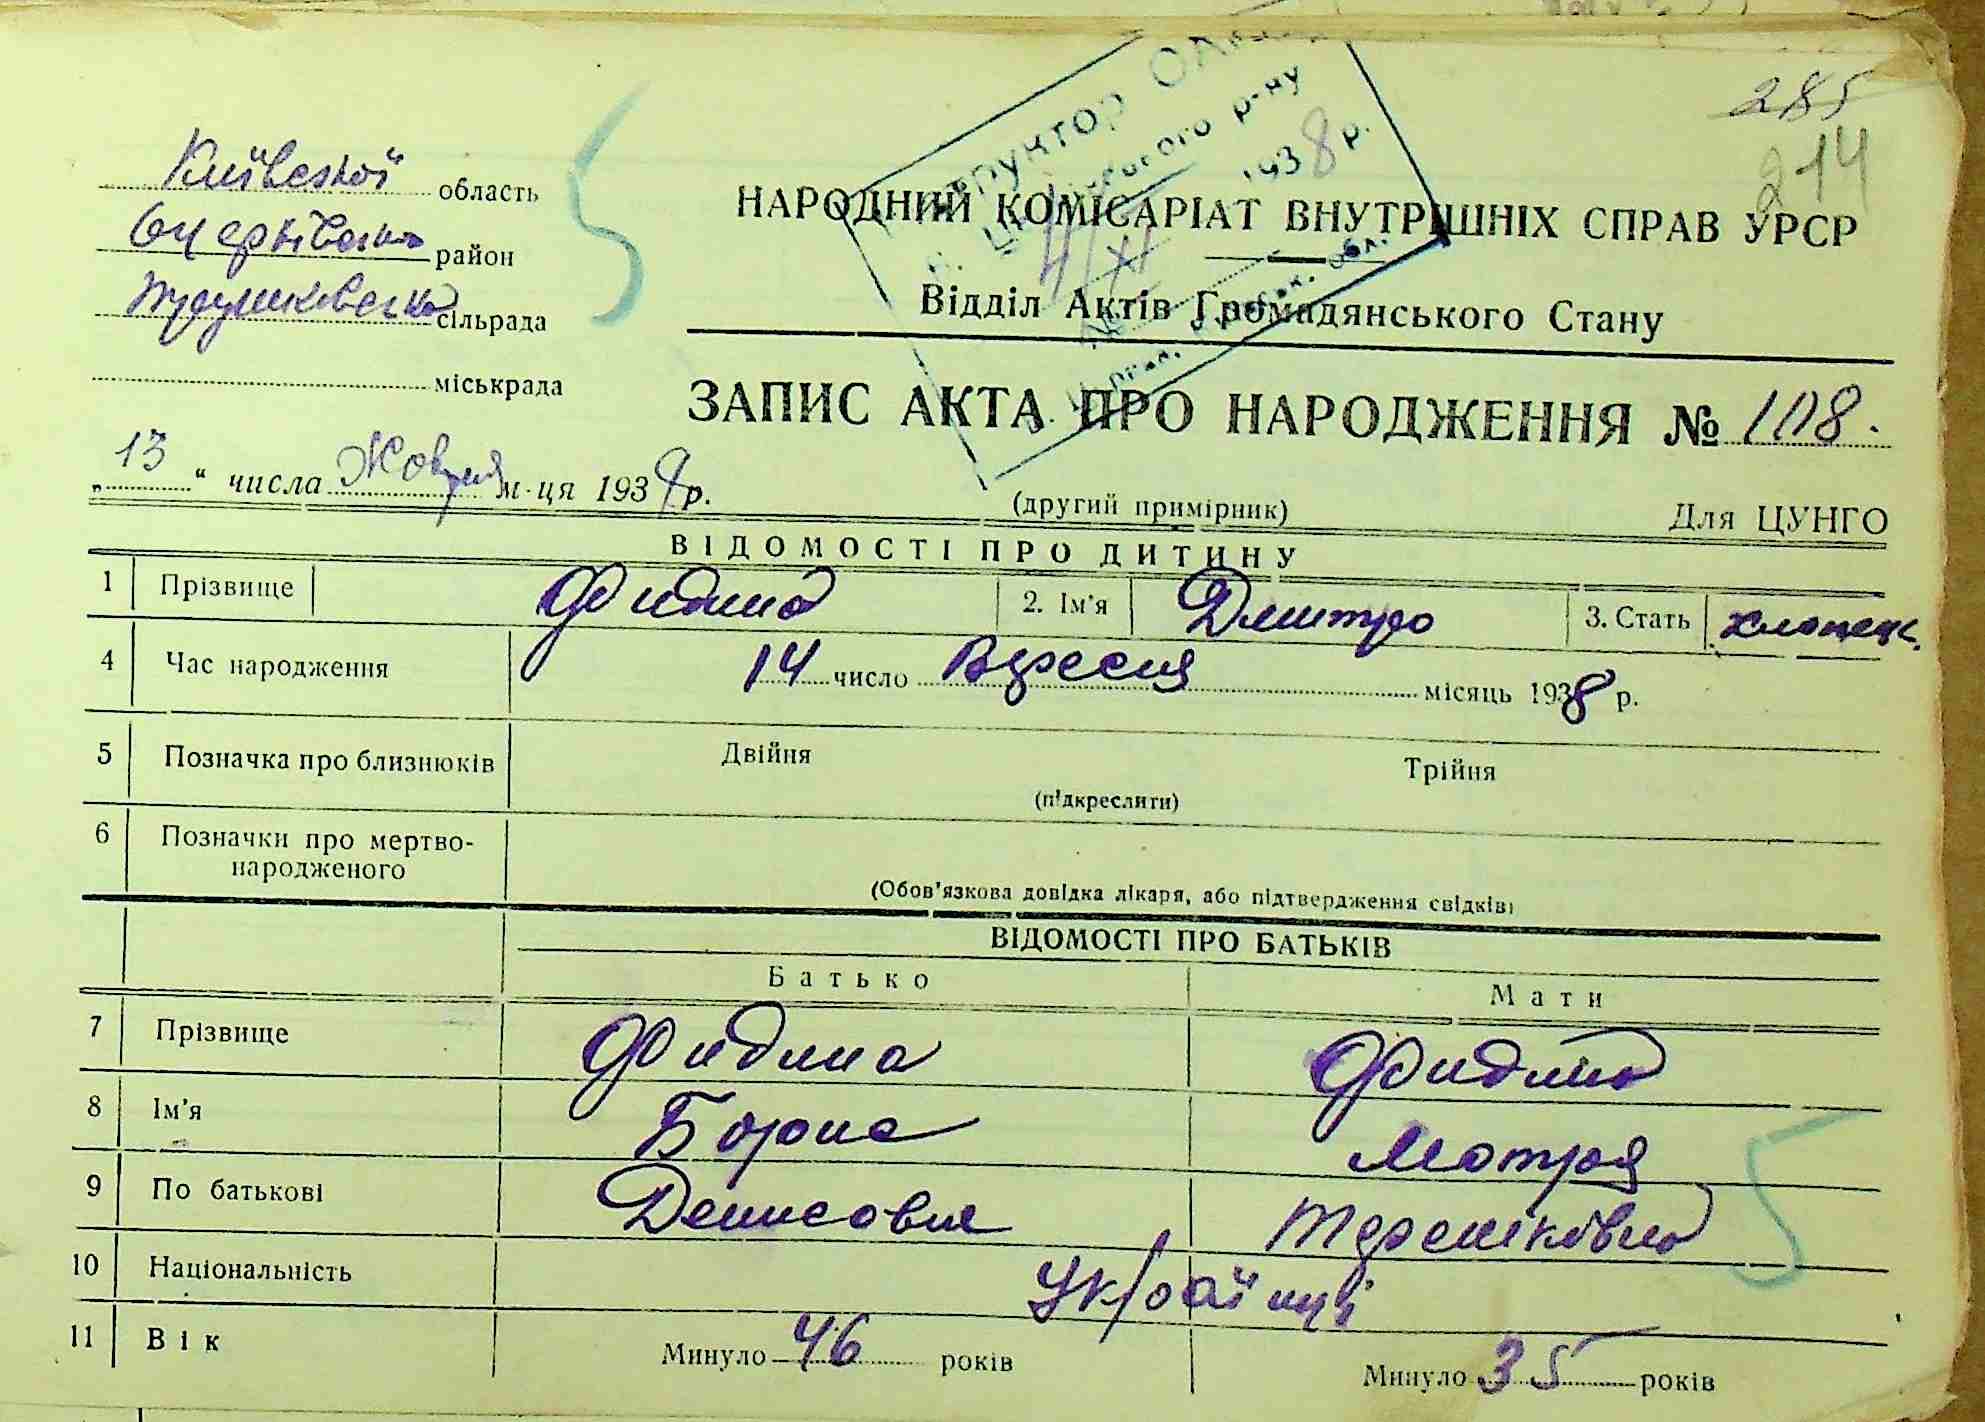 285
214
Київської область
район
сільрада
міськрада
р-ну
1938 р.
НАРОДНИЙ КОМІСАРІАТ ВНУТРІШНІХ СПРАВ УРСР
Відділ Актів Громадянського Стану
ЗАПИС АКТА ПРО НАРОДЖЕННЯ № 108.
„13“ числа Жовтня м-ця 1938 р.
(другий примірник) Для ЦУНГО
ВІДОМОСТІ ПРО ДИТИНУ
1 Прізвище Фидина 2. Ім'я Дмитро 3. Стать хлопець.
4 Час народження 14 число Вересня місяць 1938 р.
5 Позначка про близнюків Двійня Трійня
(підкреслити)
6 Позначки про мертво-
народженого
(Обов'язкова довідка лікаря, або підтвердження свідків)
ВІДОМОСТІ ПРО БАТЬКІВ
Батько Мати
7 Прізвище Фидина Фидина
8 Ім'я Борис Мотря
9 По батькові Денисович Терешківна
10 Національність Українці
11 Вік Минуло 46 років Минуло 35 років